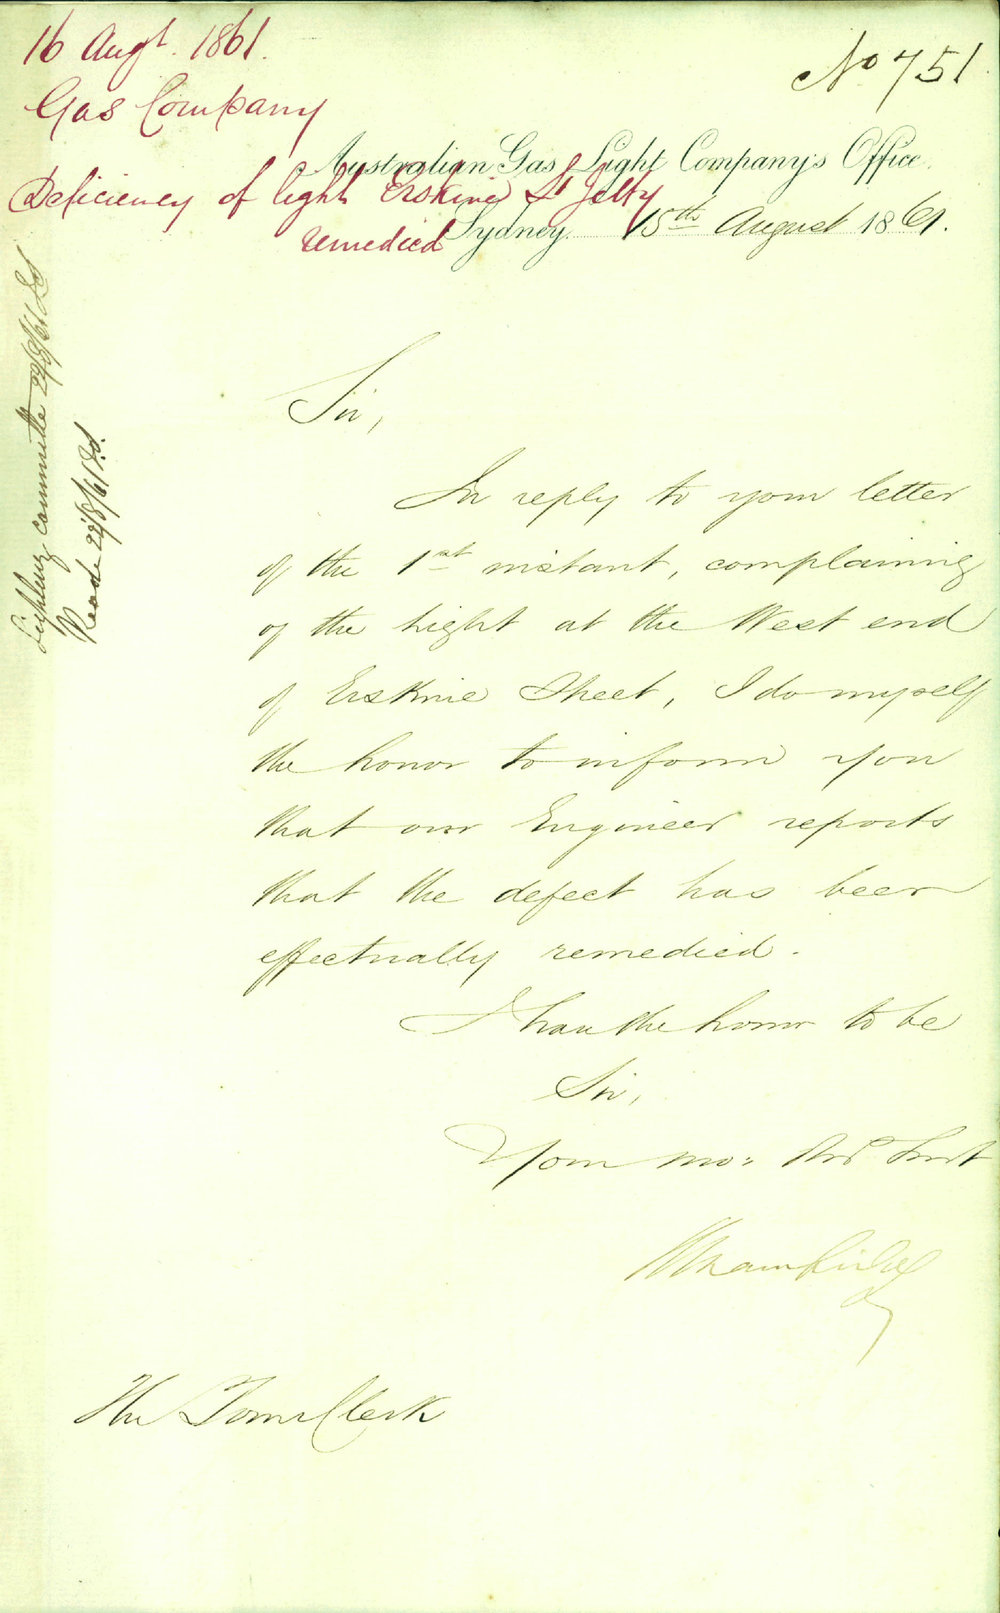 16 Augt. 1861.
Gas Company
Deficiency of light Erskine St Jetty
remedied
No 751
Australian Gas Light Company's Office
Sydney. 15th August 1861.
Lighting Committee 22/8/61
Read 22/8/61
Sir,
In reply to your letter
of the 1st instant, complaining
of the light at the West end
of Erskine Street, I do myself
the honor to inform you
that our Engineer reports
that the defect has been
effectually remedied.
I have the honor to be
Sir,
Your mo: Obd Servt
The Town Clerk